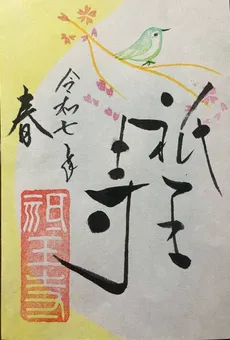 祇王寺
令和七年
春
祇王寺